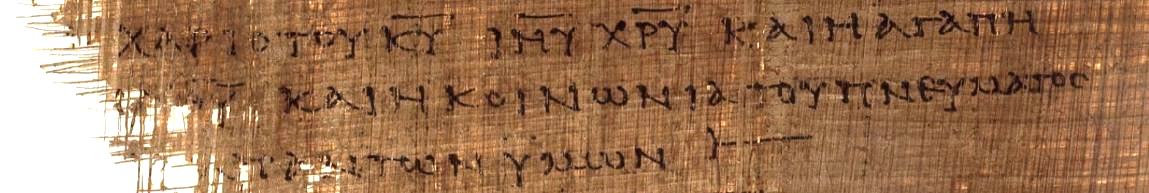 ΧΑΡΙϹ ΤΟΥ Κ̅Υ̅ Ι̅Η̅Υ̅ Χ̅Ρ̅Υ̅ ΚΑΙ Η ΑΓΑΠΗ
ΚΑΙ Η ΚΟΙΝΩΝΙΑ ΤΟΥ ΠΝΕΥΜΑΤΟϹ
ΠΑΝΤΩΝ ΥΜΩΝ